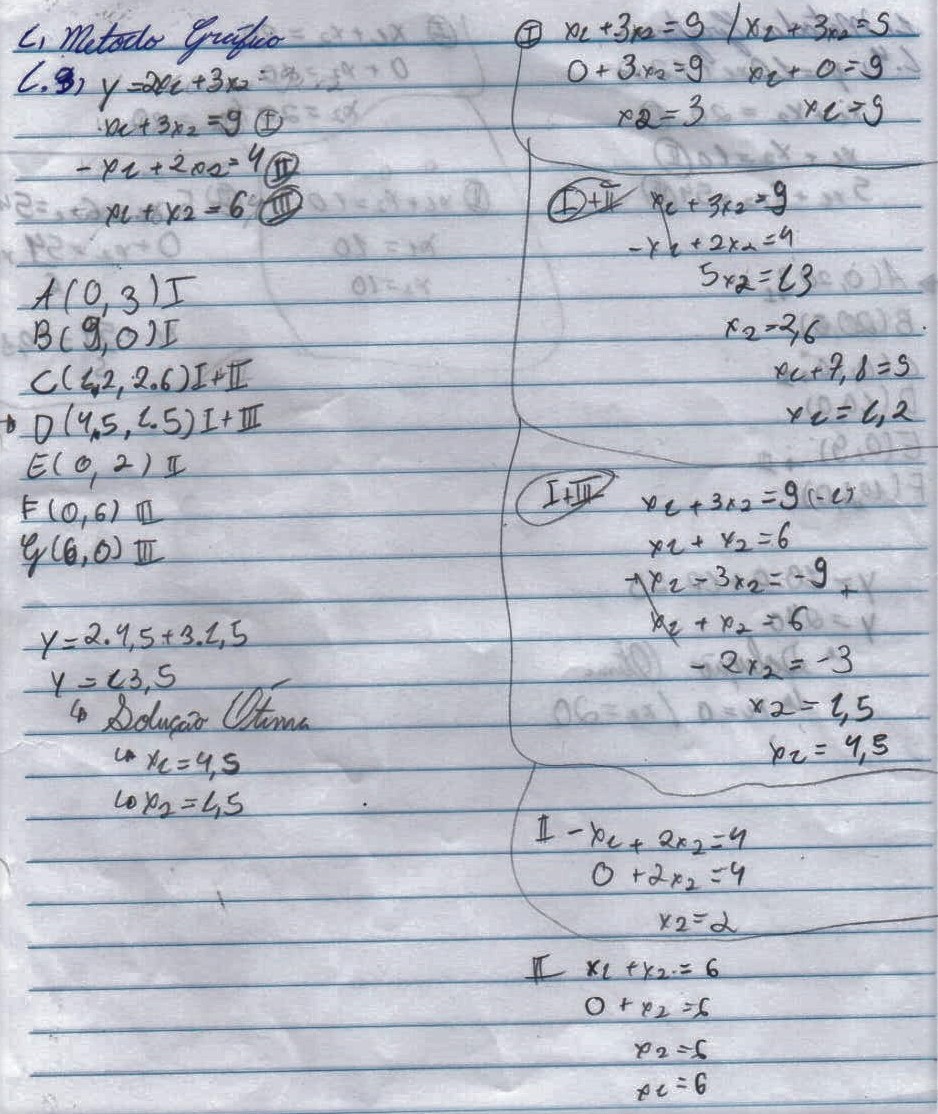 1, Metodo Gráfico
1.3) y=2x1+3x2=
x1+3x2=9 I
-x1+2x2=4 II
x1+x2=6 III
A(0,3) I
B(9,0) I
C(1,2, 2.6) I+II
D(4,5, 1.5) I+III
E(0, 2) II
F(0,6) III
G(6,0) III
y=2.4,5+3.1,5
y=13,5
↳ Solução Ótima
↳ x1=4,5
↳ x2=1,5
I x1+3x2=9 / x1+3x2=9
0+3x2=9 x1+0=9
x2=3 x1=9
I+II x1+3x2=9
-x1+2x2=4
5x2=13
x2=2,6
x1+7,8=9
x1=1,2
I+III x1+3x2=9(-1)
x1+x2=6
-x1-3x2=-9 +
x1+x2=6
-2x2=-3
x2=1,5
x1=4,5
II -x1+2x2=4
0+2x2=4
x2=2
II x1+x2=6
0+x2=6
x2=6
x1=6